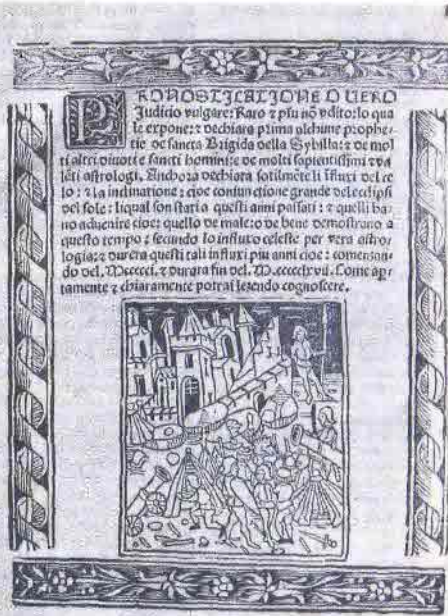 PRONOSTICATIONE O VERO
Judicio vulgare: Raro ⁊ piu nõ vdito: lo qua
le expone: ⁊ dechiara prima alchune prophe-
tie de sancta Brigida della Sybilla: ⁊ de mol
ti altri divoti e sancti homini: e de molti sapientissimi ⁊ va
lẽti astrologi. Anchora dechiara sotilmẽte li Iſluxi del ce
lo: ⁊ la inclinatione: cioe coniunctione grande del eclipsi
del sole: liqual son stati a questi anni passati: ⁊ quelli ha-
no advenire cioe: quello de male: o de bene demostrano a
questo tempo: secundo lo influto celeste per vera astro-
logia: ⁊ durera questi tali influxi piu anni cioe: comenzan-
do del. ⁊ durara fin del. Come aper
tamente ⁊ chiaramente potrai lezendo cognoscere.